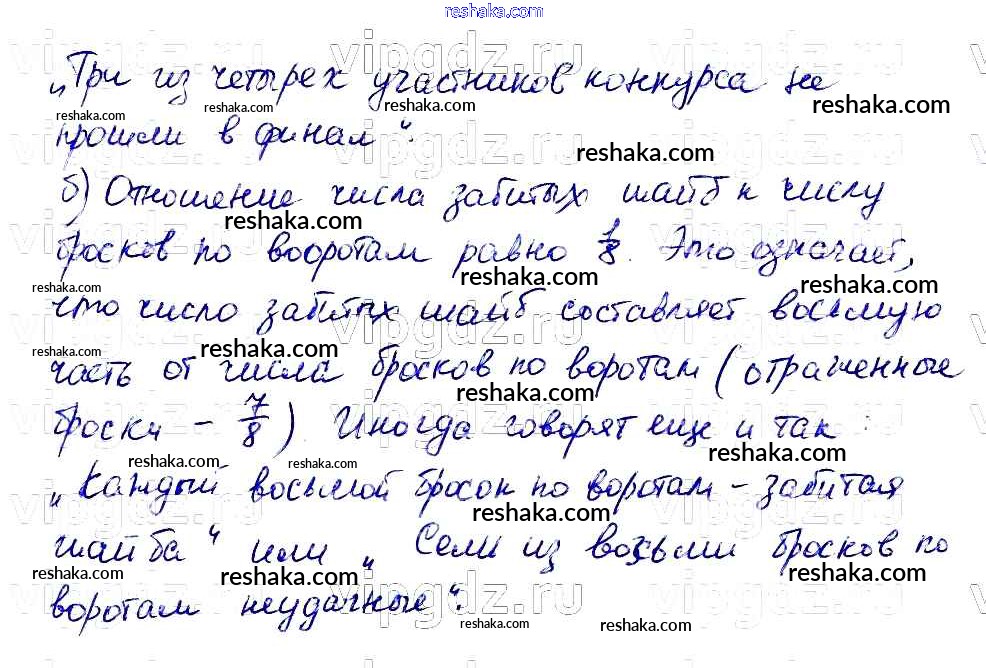 reshaka.com
„Три из четырех участников конкурса не
прошли в финал“.
б) Отношение числа забитых шайб к числу
бросков по вооротам равно 1/8. Это означает,
что число забитых шайб составляет восьмую
часть от числа бросков по воротам (отраженные
броски – 7/8). Иногда говорят еще и так :
„Каждый восьмой бросок по воротам – забитая
шайба“ или „Семь из восьми бросков по
воротам неудачные“.